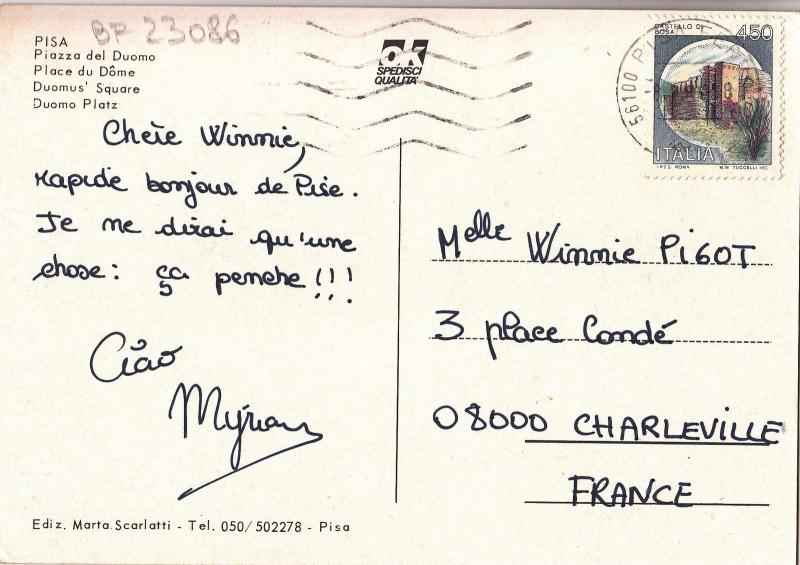 PISA
Piazza del Duomo
Place du Dôme
Duomus' Square
Duomo Platz
BP 23086
OK
SPEDISCI
QUALITA'
CASTELLO DI
BOSA
450
ITALIA
I.P.Z.S. ROMA M.M. TUCCELLI INC.
56100 PI
Chère Winnie,
rapide bonjour de Pise.
Je ne dirai qu'une
chose: ça penche !!!
Ciao
Myriam
Melle Winnie PIGOT
3 place Condé
08000 CHARLEVILLE
FRANCE
Ediz. Marta Scarlatti - Tel. 050/502278 - Pisa